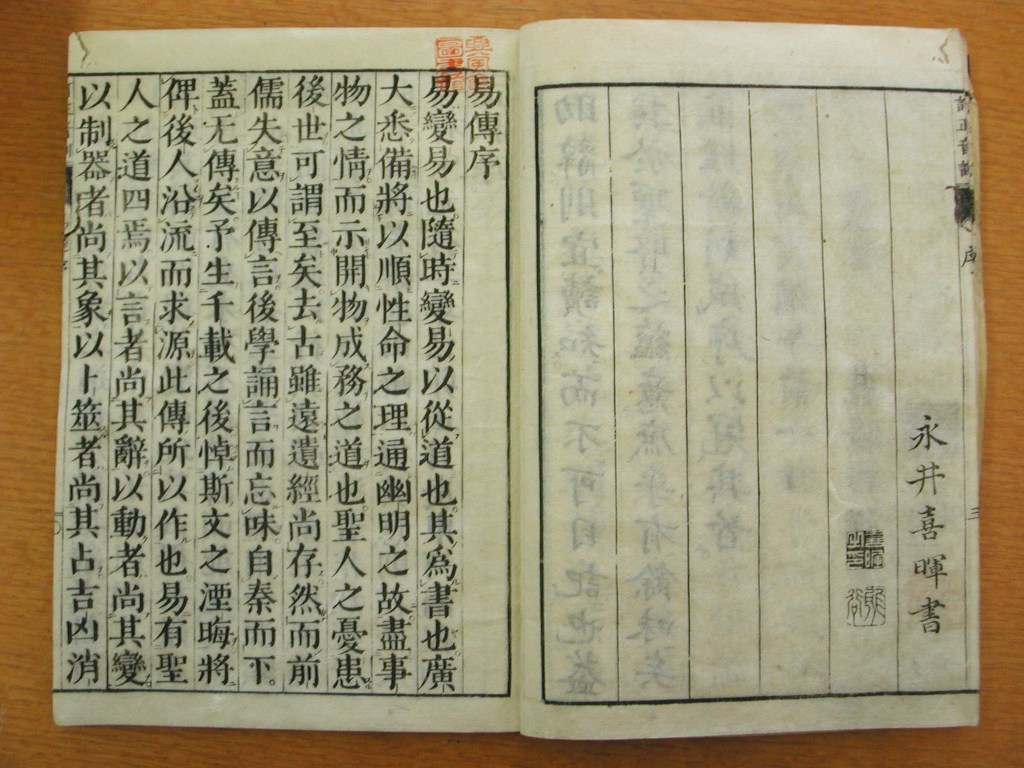 序
三
永井喜暉書
易傳序
易變易也隨時變易以從道也其爲書也廣
大悉備將以順性命之理通幽明之故盡事
物之情而示開物成務之道也聖人之憂患
後世可謂至矣去古雖遠遺經尚存然而前
儒失意以傳言後學誦言而忘味自秦而下。
蓋无傳矣予生千載之後悼斯文之湮晦將
俾後人沿流而求源此傳所以作也易有聖
人之道四焉以言者尚其辭以動者尚其變
以制器者尚其象以卜筮者尚其占吉凶消